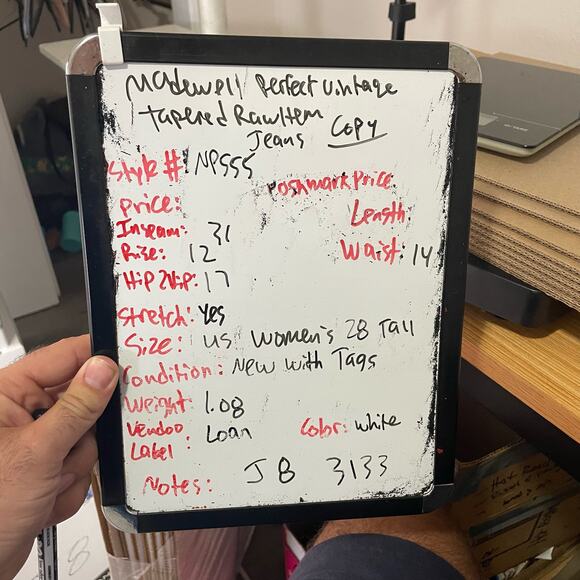 Madewell Perfect Vintage
Tapered Raw Hem
Jeans COPY
Style #: NP555
Poshmark Price:
Price:
Length:
Inseam: 31
Rise: 12
Waist: 14
Hip 2 Hip: 17
Stretch: Yes
Size: US Women's 28 Tall
Condition: New with Tags
Weight: 1.08
Vendoo Label: Loan
Color: White
Notes: JB 3133